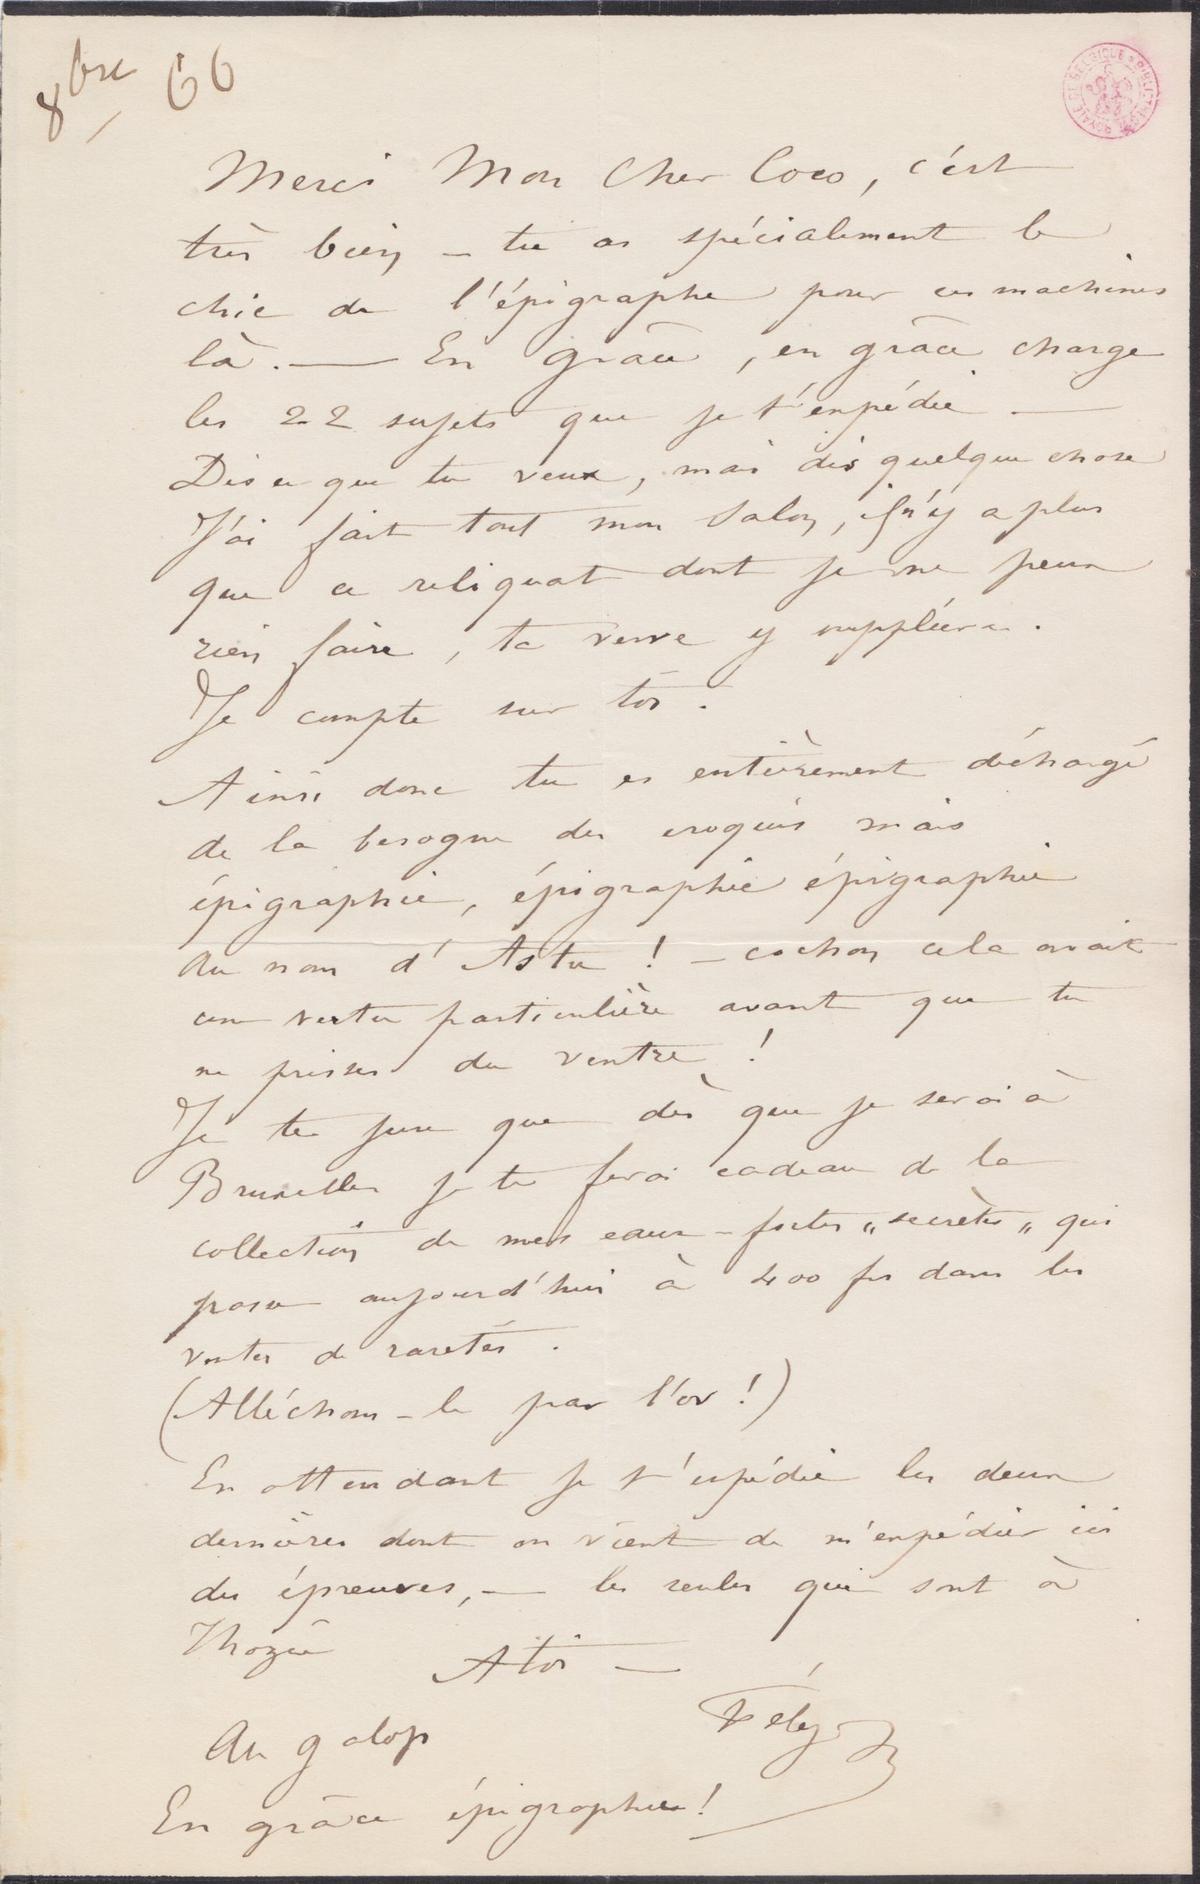 8bre 66
BIBLIOTHEQUE ROYALE DE BELGIQUE
Merci Mon Cher Coco, c'est
très bien – tu as spécialement le
chic de l'épigraphe pour ces machines
là. — En grâce, en grâce charge
les 22 sujets que je t'expédie —
Dis ce que tu veux, mais dis quelque chose
J'ai fait tout mon Salon, il n'y a plus
que ce reliquat dont je ne peux
rien faire, ta verve y suppléera.
Je compte sur toi.
Ainsi donc tu es entièrement déchargé
de la besogne des croquis mais
épigraphie, épigraphie épigraphie
au nom d'Astu ! – cochon cela avait
une vertu particulière avant que tu
ne prisses du ventre !
Je te jure que dès que je serai à
Bruxelles je te ferai cadeau de la
collection de mes eaux-fortes „secrètes„ qui
pose aujourd'hui à 400 frs dans les
ventes de raretés.
(Alléchons-le par l'or !)
En attendant je t'expédie les deux
dernières dont on vient de m'expédier ici
des épreuves, — les seules qui sont à
Thozée
A toi —
Fély
Au galop
En grâce épigraphie !